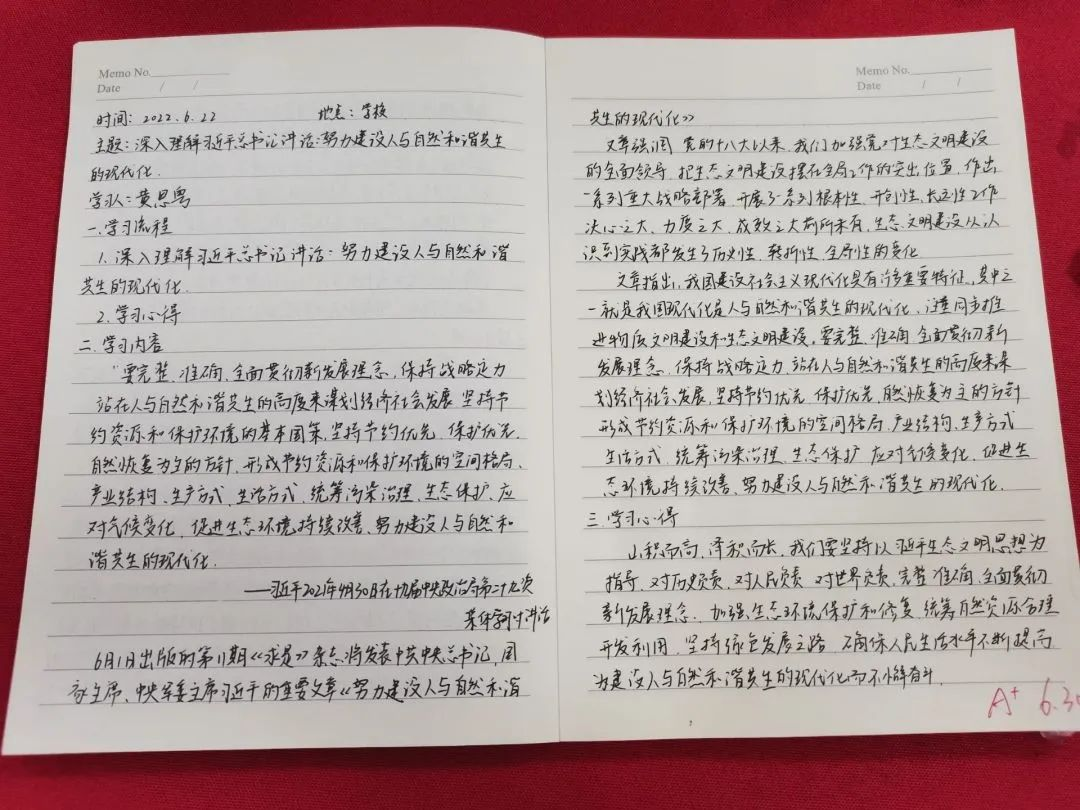 Memo No.
Date / /
时间：2022.6.22 地点：学校
主题：深入理解习近平总书记讲话：努力建设人与自然和谐共生
的现代化.
学习人：黄思粤
一.学习流程
1.深入理解习近平总书记讲话：努力建设人与自然和谐
共生的现代化.
2.学习心得
二.学习内容
"要完整、准确、全面贯彻新发展理念，保持战略定力
站在人与自然和谐共生的高度来谋划经济社会发展.坚持节
约资源和保护环境的基本国策,坚持节约优先、保护优先、
自然恢复为主的方针,形成节约资源和保护环境的空间格局、
产业结构、生产方式、生活方式，统筹污染治理、生态保护、应
对气候变化，促进生态环境持续改善、努力建设人与自然和
谐共生的现代化.
——习近平2021年4月30日在十九届中央政治局第二十九次
集体学习时讲话
6月1日出版的第11期《求是》杂志将发表中共中央总书记，国
家主席、中央军委主席习近平的重要文章《努力建设人与自然和谐
Memo No.
Date / /
共生的现代化》
文章强调 党的十八大以来，我们加强党对生态文明建设
的全面领导，把生态文明建设摆在全局工作的突出位置，作出
一系列重大战略部署，开展了一系列根本性、开创性、长远性工作
决心之大，力度之大，成效之大前所未有，生态文明建设从认
识到实践都发生了历史性、转折性、全局性的变化
文章指出，我国建设社会主义现代化具有许多重要特征，其中之
一就是我国现代化是人与自然和谐共生的现代化，注重同步推
进物质文明建设和生态文明建设，要完整、准确、全面贯彻新
发展理念，保持战略定力，站在人与自然和谐共生的高度来谋
划经济社会发展，坚持节约优先、保护优先、自然恢复为主的方针
形成节约资源和保护环境的空间格局，产业结构、生产方式
生活方式，统筹污染治理、生态保护、应对气候变化，促进生
态环境持续改善、努力建设人与自然和谐共生的现代化.
三.学习心得
山积而高，泽积而长，我们要坚持以习近平生态文明思想为
指导，对历史负责，对人民负责，对世界负责，完整 准确 全面贯彻
新发展理念，加强生态环境保护和修复，统筹自然资源合理
开发利用，坚持绿色发展之路，确保人民生活水平不断提高
为建设人与自然和谐共生的现代化而不懈奋斗.
A+ 6.30